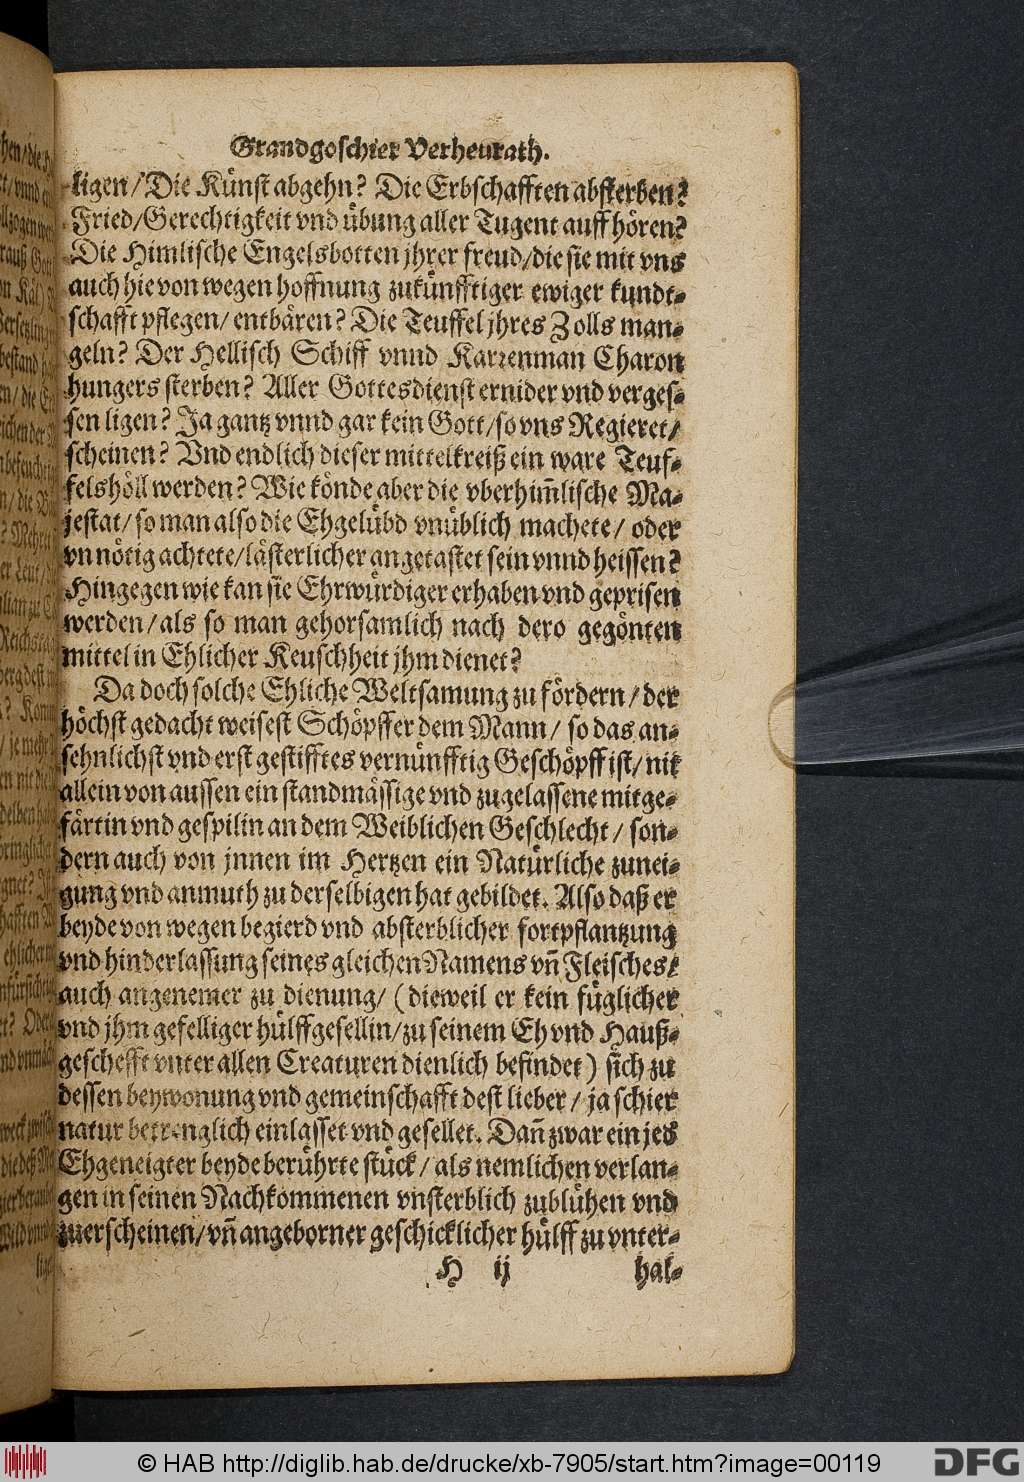 Grandgoschier Verheurath.
ligen/ Die Künst abgehn? Die Erbschafften absterben?
Fried/Gerechtigkeit vnd übung aller Tugent auffhören?
Die Himlische Engelsbotten jhrer freud/die sie mit vns
auch hie von wegen hoffnung zukünfftiger ewiger kundt-
schafft pflegen/ entbären? Die Teuffel jhres Zolls man-
geln? Der Hellisch Schiff vnnd Karrenman Charon
hungers sterben? Aller Gottesdienst ernider vnd verges-
sen ligen? Ja gantz vnnd gar kein Gott/so vns Regieret/
scheinen? Vnd endlich dieser mittelkreiß ein ware Teuf-
felshöll werden? Wie könde aber die vberhim̃lische Ma-
jestat/ so man also die Ehgelübd vnüblich machete/ oder
vnnötig achtete/lästerlicher angetastet sein vnnd heissen?
Hingegen wie kan sie Ehrwürdiger erhaben vnd geprisen
werden/als so man gehorsamlich nach dero gegönten
mittel in Ehlicher Keuschheit jhm dienet?
Da doch solche Ehliche Weltsamung zu fördern/ der
höchst gedacht weisest Schöpffer dem Mann/ so das an-
sehnlichst vnd erst gestifftes vernünfftig Geschöpff ist/ nit
allein von aussen ein standmässige vnd zugelassene mitge-
färtin vnd gespilin an dem Weiblichen Geschlecht/ son-
dern auch von jnnen im Hertzen ein Natürliche zunei-
gung vnd anmuth zu derselbigen hat gebildet. Also daß er
beyde von wegen begierd vnd absterblicher fortpflantzung
vnd hinderlassung seines gleichen Namens vñ Fleisches/
auch angenemer zu dienung/ (dieweil er kein füglicher
vnd jhm gefelliger hülffgesellin/zu seinem Eh vnd Hauß-
geschefft vnter allen Creaturen dienlich befindet) sich zu
dessen beywonung vnd gemeinschafft dest lieber/ ja schier
natur betrenglich einlasset vnd gesellet. Dañ zwar ein jeds
Ehgeneigter beyde berührte stück/ als nemlichen verlan-
gen in seinen Nachkommenen vnsterblich zublühen vnd
zuerscheinen/vñ angeborner geschicklicher hülff zu vnter-
H ij hal-
© HAB http://diglib.hab.de/drucke/xb-7905/start.htm?image=00119
DFG